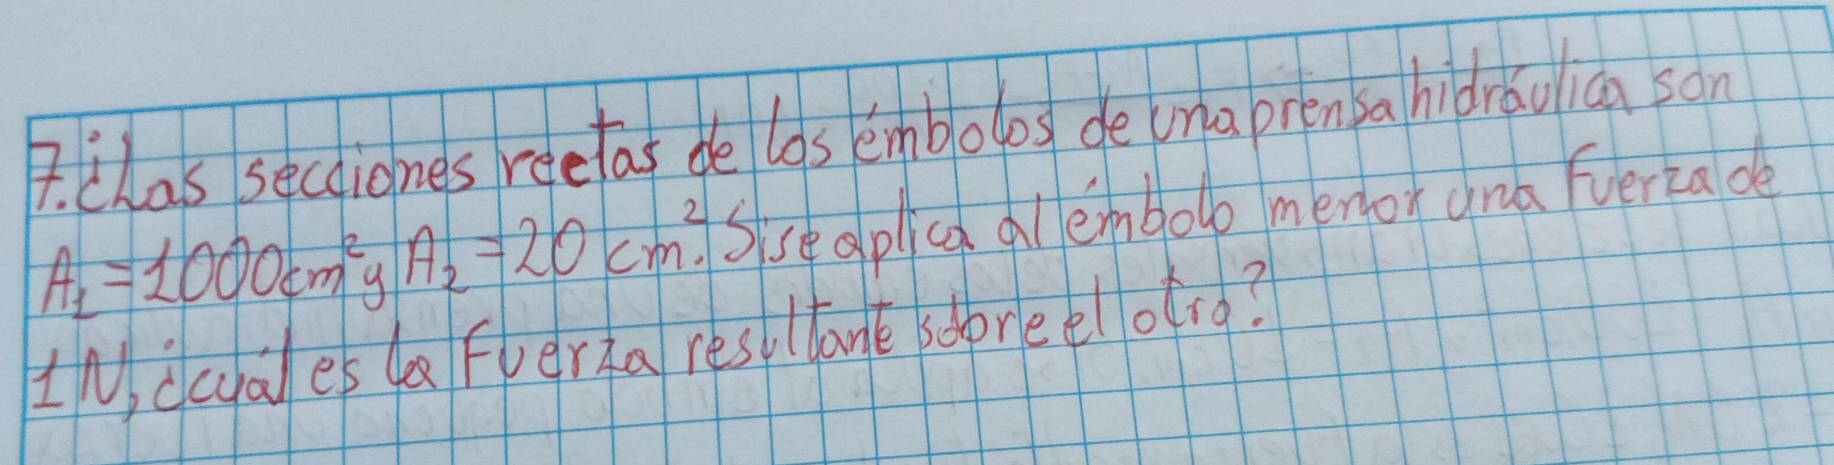 7. ¿Las secciones rectas de los émbolos de una prensa hidráulica son
A₁ = 1000cm² y A₂ = 20 cm². Si se aplica al émbolo menor una fuerza de
1 N, ¿cuál es la fuerza resultante sobre el otro?